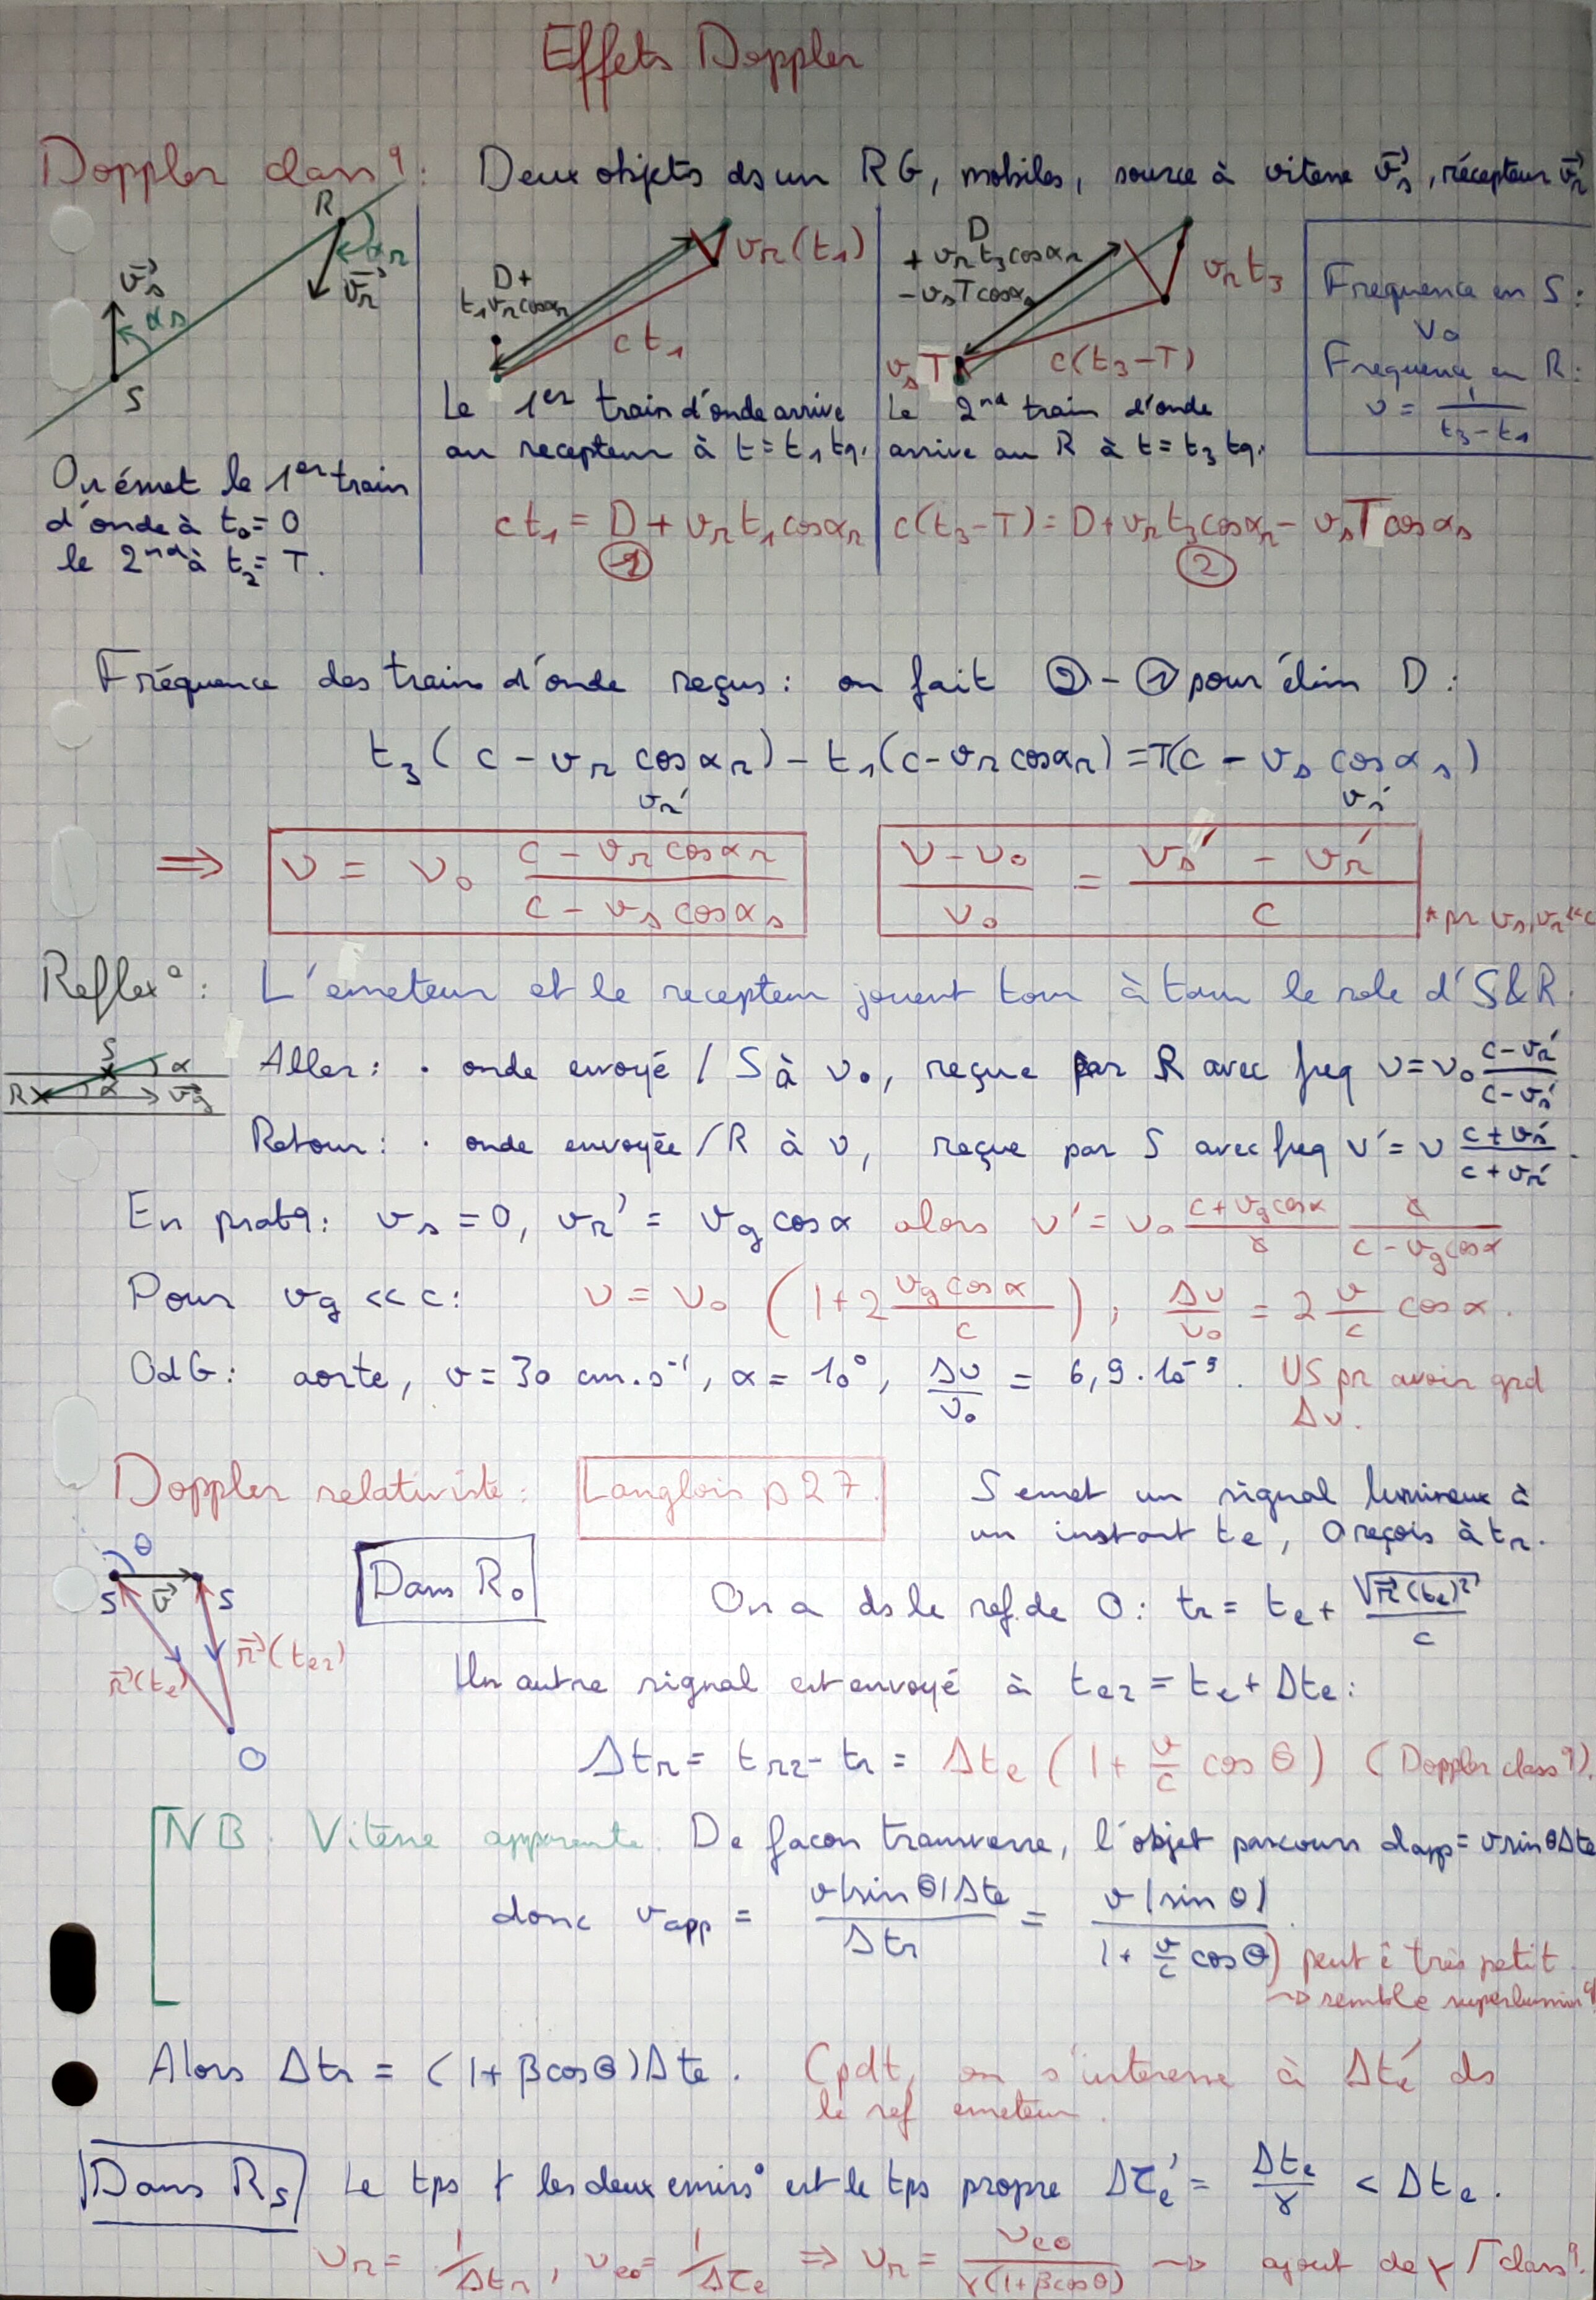 Effets Doppler
Doppler class q : Deux objets ds un RG, mobiles, source à vitesse v⃗s, récepteur v⃗r
R
αr
v⃗r
v⃗s
αs
S
D +
t₁ vr cosαr
vr(t₁)
c t₁
D
+ vr t₃ cosαr
- vs T cosαs
vr t₃
vs T
c(t₃-T)
Frequence en S :
ν₀
Frequence en R :
ν = 1/(t₃-t₁)
On émet le 1er train
d'onde à t₀ = 0
le 2nd à t₂ = T.
Le 1er train d'onde arrive
au recepteur à t = t₁ tq.
ct₁ = D + vr t₁ cosαr
①
Le 2nd train d'onde
arrive au R à t = t₃ tq.
c(t₃-T) = D + vr t₃ cosαr - vs T cosαs
②
Fréquence des train d'onde reçus : on fait ②-① pour élim D :
t₃ (c - vr cosαr) - t₁(c - vr cosαr) = T(c - vs cosαs)
vr' vs'
⟹ ν = ν₀ (c - vr cosαr)/(c - vs cosαs) (ν - ν₀)/ν₀ = (vs' - vr')/c * pr vs, vr << c
Reflex° : L'emeteur et le recepteur jouent tour à tour le role d'S&R.
S
α
R
α
v⃗g
Aller : · onde envoyé / S à ν₀, reçue par R avec freq ν = ν₀ (c - vr')/(c - vs')
Retour : · onde envoyée / R à ν, reçue par S avec freq ν' = ν (c + vs')/(c + vr').
En pratq : vs = 0, vr' = vg cosα alors ν' = ν₀ (c + vg cosα)/c c/(c - vg cosα)
Pour vg << c : ν = ν₀ (1 + 2 vg cosα/c), Δν/ν₀ = 2 v/c cosα.
OdG : aorte, v = 30 cm.s⁻¹, α = 10°, Δν/ν₀ = 6,9.10⁻⁹. US pr avoir grd
Δν.
Doppler relativiste : Langlois p27. S emet un signal lumineux à
un instant te, O reçois à tr.
θ
S
v⃗
S
r⃗(te)
r⃗(te2)
O
Dans R₀
On a ds le ref. de O : tr = te + √(r⃗(te)²)/c
Un autre signal est envoyé à te2 = te + Δte :
Δtr = tr2 - tr = Δte (1 + v/c cos θ) (Doppler class q).
NB. Vitesse apparente. De facon transverse, l'objet parcours dapp = v sinθ Δte
donc vapp = v|sin θ|Δte/Δtr = v|sin θ|/(1 + v/c cosθ).
peut ê très petit
→ semble superlumin q
Alors Δtr = (1 + βcosθ)Δte. Cpdt, on s'interesse à Δte' ds
le ref emeteur.
Dans Rs Le tps ⊢ les deux emiss° est le tps propre Δτe' = Δte/γ < Δte.
νr = 1/Δtr, νe0 = 1/Δτe ⟹ νr = νe0/(γ(1+βcosθ)) → ajout de γ / class q.